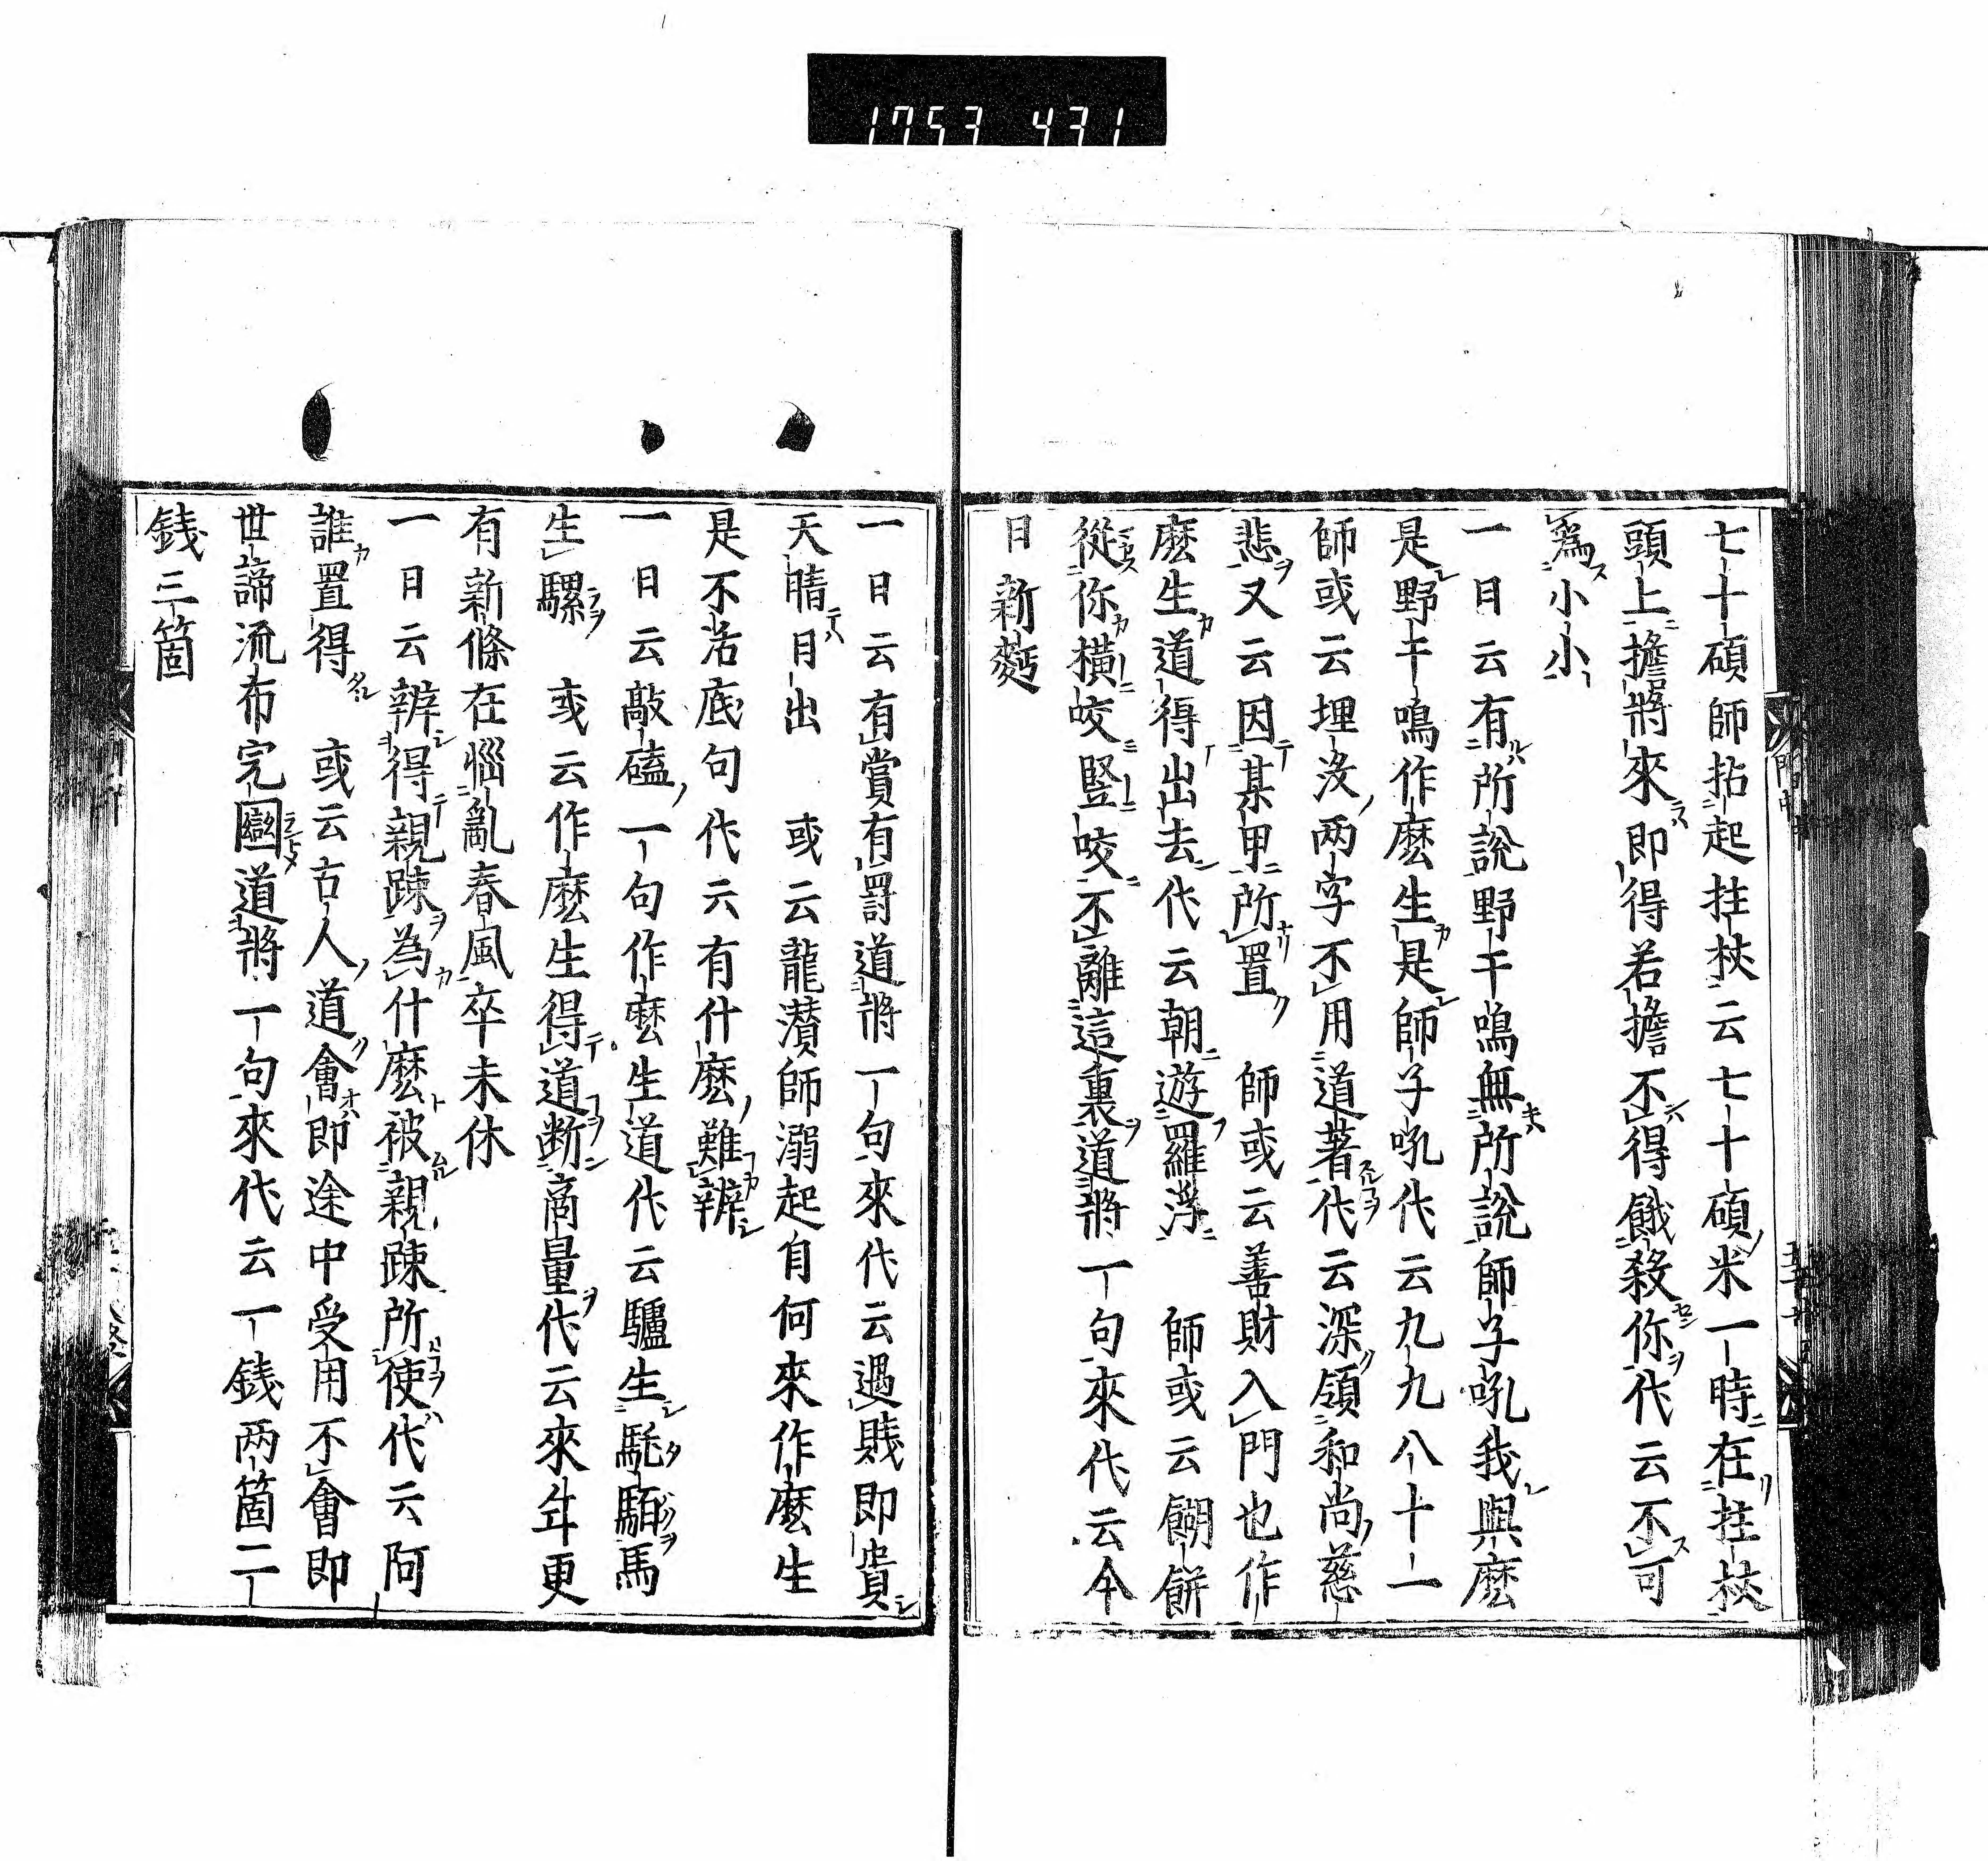 1753 431
七十碩師拈起拄杖云七十碩米一時在拄杖
頭上擔將來即得若擔不得餓殺你代云不可
爲小小
一日云有所說野干鳴無所說師子吼我與麼
是野干鳴作麼生是師子吼代云九九八十一
師或云埋没两字不用道著代云深領和尚慈
悲又云因某甲所置　師或云善財入門也作
麼生道得出去代云朝遊羅浮　師或云餬餅
從你橫咬竪咬不離這裏道將一句來代云今
日新麪
一日云有賞有罰道將一句來代云遇賤即貴
天晴日出　或云龍濳師溺起自何來作麼生
是不若底句代云有什麼難辨
一日云敲磕一句作麼生道代云驢生馲駞馬
生騾　或云作麼生得道断商量代云來年更
有新條在惱亂春風卒未休
一日云辨得親踈為什麼被親踈所使代云阿
誰置得　或云古人道會即途中受用不會即
世諦流布完圝道將一句來代云一錢两箇二
錢三箇